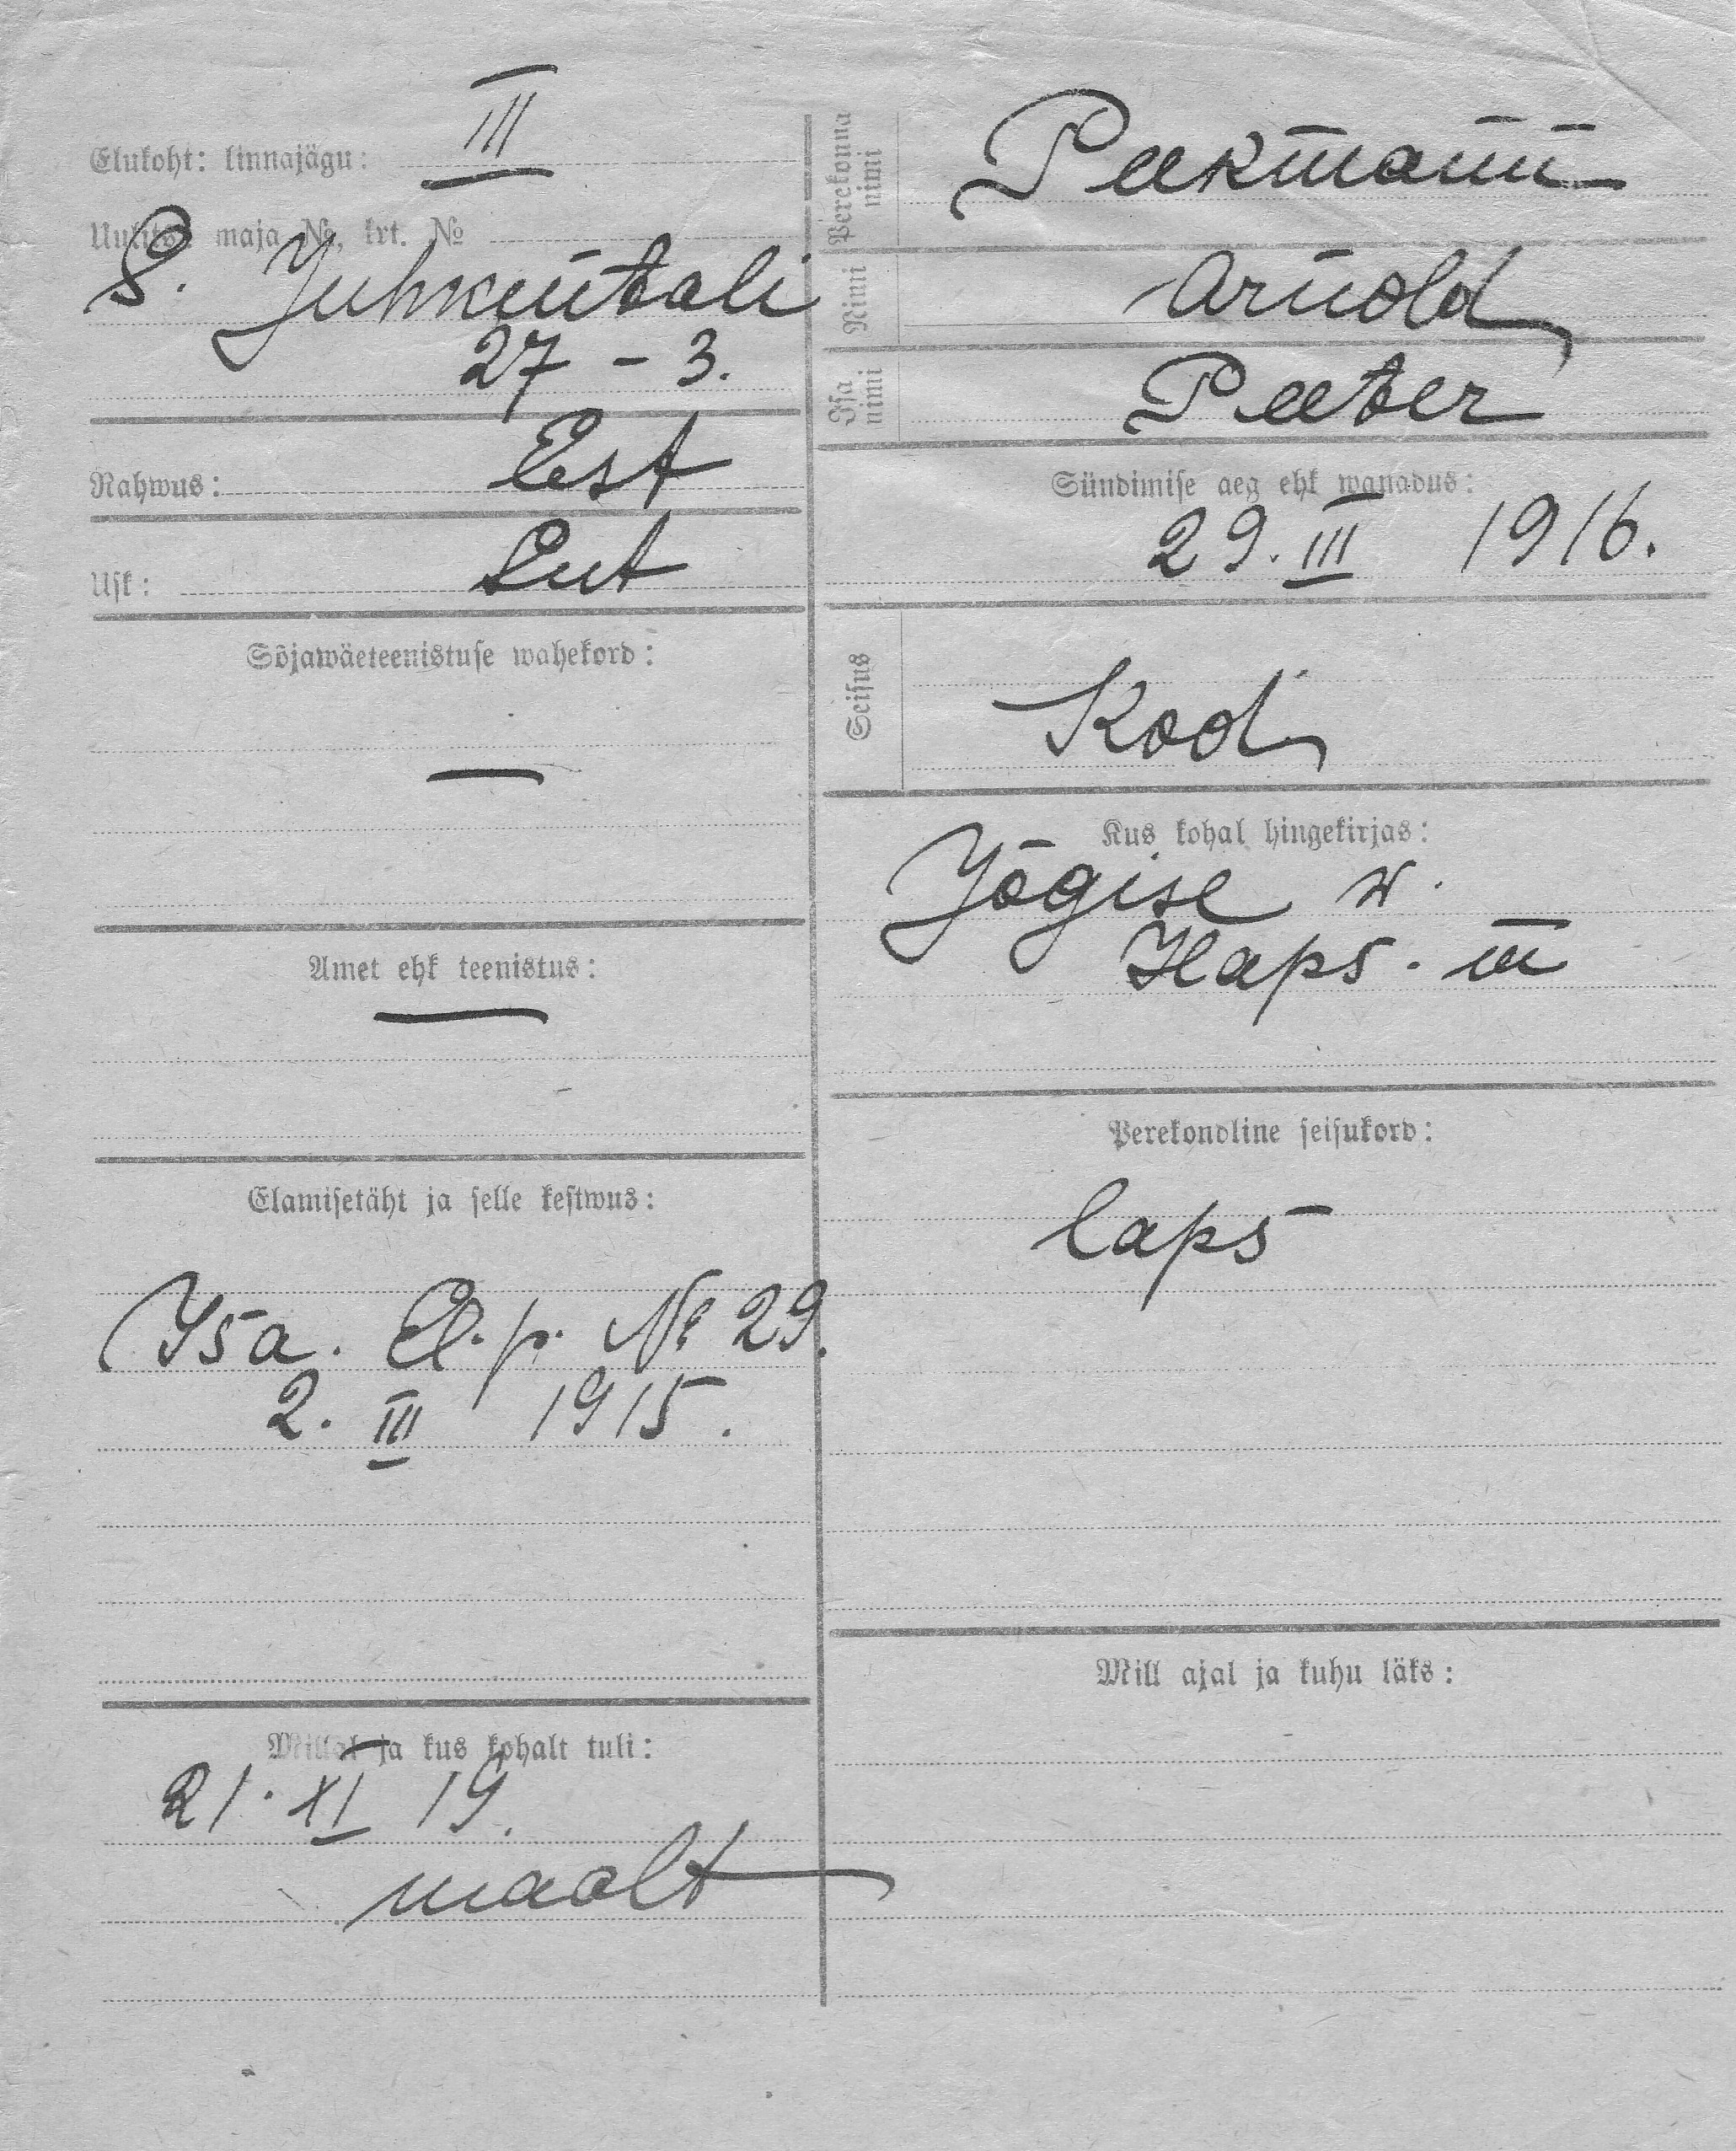 Elukoht: linnajägu: III
Uulitsa maja №, krt. №
S. Juhkentali
27 – 3.
Rahwus: Eest
Usk: Lut
Sõjawäeteenistuse wahekord:
—
Amet ehk teenistus:
—
Elamisetäht ja selle kestwus:
Isa. El. p. № 29.
2. III 1915.
Millal ja kus kohalt tuli:
21. XI 19.
maalt
Perekonna nimi
Peekmann
Nimi
Arnold
Isa nimi
Peeter
Sündimise aeg ehk wanadus:
29. III 1916.
Seisus
Kod.
Kus kohal hingekirjas:
Jõgise w.
Haps. m
Perekondline seisukord:
laps
Mill ajal ja kuhu läks: